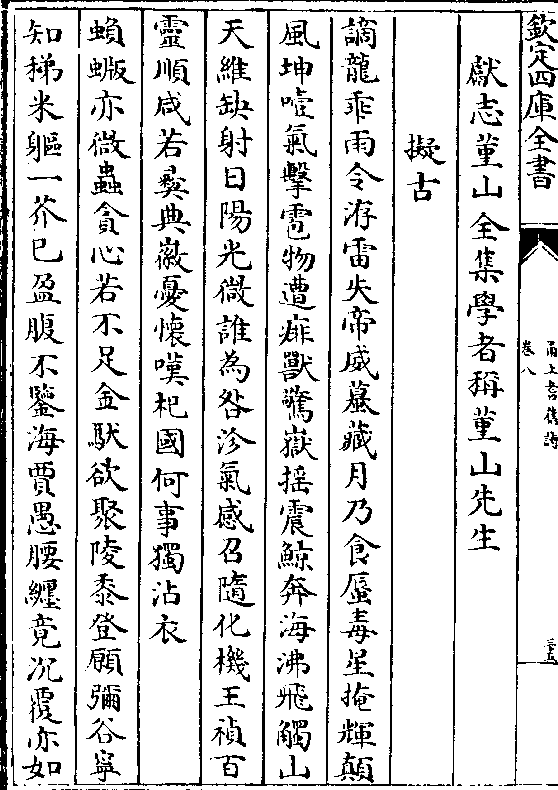 欽定四庫全書
甬上耆舊詩
卷八
三五
獻志董山全集學者稱董山先生
擬古
謫龍乖雨令洊雷失帝威蟇藏月乃食蜃毒星掩輝顛
風坤噎氣擊雹物遭痱獸驚嶽搖震鯨奔海沸飛觸山
天維缺射日陽光微誰為咎沴氣感召隨化機王禎百
靈順咸若彞典徽憂懷嘆杞國何事獨沾衣
蝜蝂亦微蟲貪心若不足金馱欲聚陵黍登願彌谷寧
知稊米軀一芥已盈腹不鑒海賈愚腰纏竟沉覆亦如